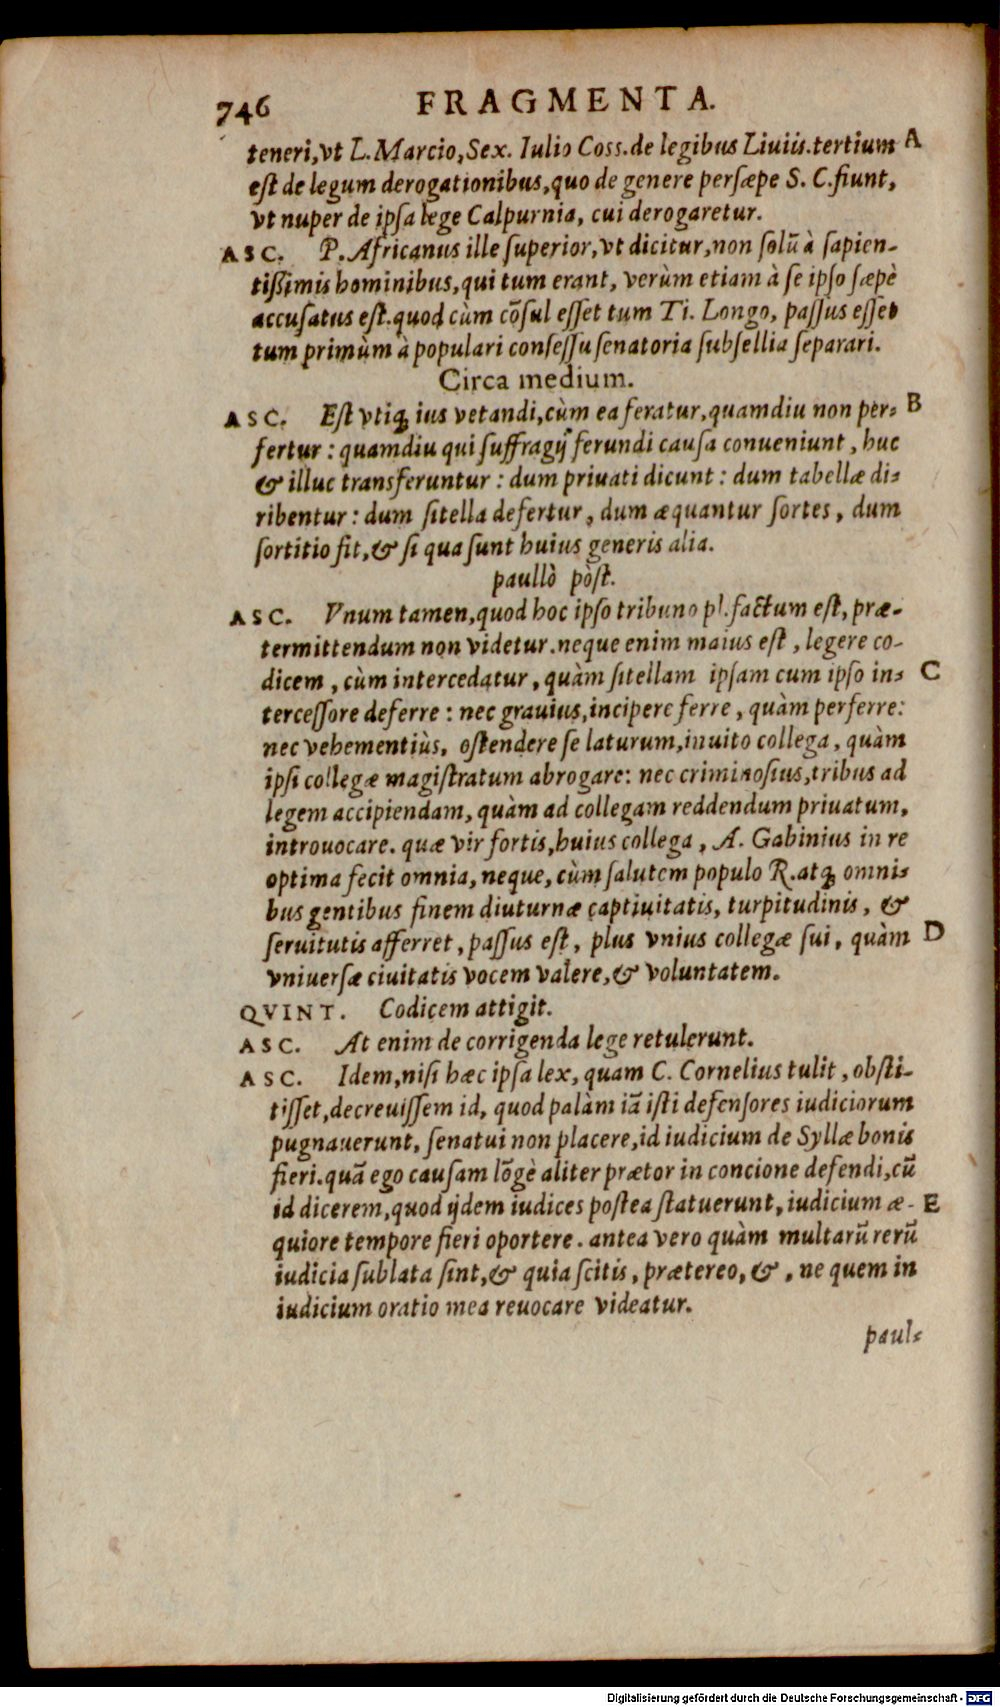 746 FRAGMENTA.
teneri,vt L.Marcio,Sex. Iulio Coss.de legibus Liuiis.tertium A
est de legum derogationibus,quo de genere persæpe S. C.fiunt,
vt nuper de ipsa lege Calpurnia, cui derogaretur.
ASC. P. Africanus ille superior,vt dicitur,non solũ à sapien-
tißimis hominibus,qui tum erant, verùm etiam à se ipso sæpè
accusatus est.quod cùm cõsul esset tum Ti. Longo, passus esset
tum primùm à populari consessu senatoria subsellia separari.
Circa medium.
ASC. Est vtiq; ius vetandi,cùm ea feratur,quamdiu non per- B
fertur : quamdiu qui suffragij ferundi causa conueniunt, huc
& illuc transferuntur : dum priuati dicunt : dum tabellæ di-
ribentur : dum sitella defertur, dum æquantur sortes, dum
sortitio fit,& si qua sunt huius generis alia.
paullò pòst.
ASC. Vnum tamen,quod hoc ipso tribuno pl.factum est, præ-
termittendum non videtur.neque enim maius est, legere co-
dicem, cùm intercedatur, quàm sitellam ipsam cum ipso in- C
tercessore deferre : nec grauius,incipere ferre, quàm perferre:
nec vehementiùs, ostendere se laturum,inuito collega, quàm
ipsi collegæ magistratum abrogare: nec criminosius,tribus ad
legem accipiendam, quàm ad collegam reddendum priuatum,
introuocare. quæ vir fortis,huius collega, A. Gabinius in re
optima fecit omnia, neque, cùm salutem populo R.atq; omni-
bus gentibus finem diuturnæ captiuitatis, turpitudinis, &
seruitutis afferret, passus est, plus vnius collegæ sui, quàm D
vniuersæ ciuitatis vocem valere,& voluntatem.
QVINT. Codicem attigit.
ASC. At enim de corrigenda lege retulerunt.
ASC. Idem,nisi hæc ipsa lex, quam C. Cornelius tulit, obsti-
tisset,decreuissem id, quod palàm iã isti defensores iudiciorum
pugnauerunt, senatui non placere,id iudicium de Syllæ bonis
fieri.quã ego causam lõgè aliter prætor in concione defendi,cũ
id dicerem,quod ijdem iudices postea statuerunt, iudicium æ- E
quiore tempore fieri oportere. antea vero quàm multarũ rerũ
iudicia sublata sint,& quia scitis, prætereo, &, ne quem in
iudicium oratio mea reuocare videatur.
paul-
Digitalisierung gefördert durch die Deutsche Forschungsgemeinschaft - DFG